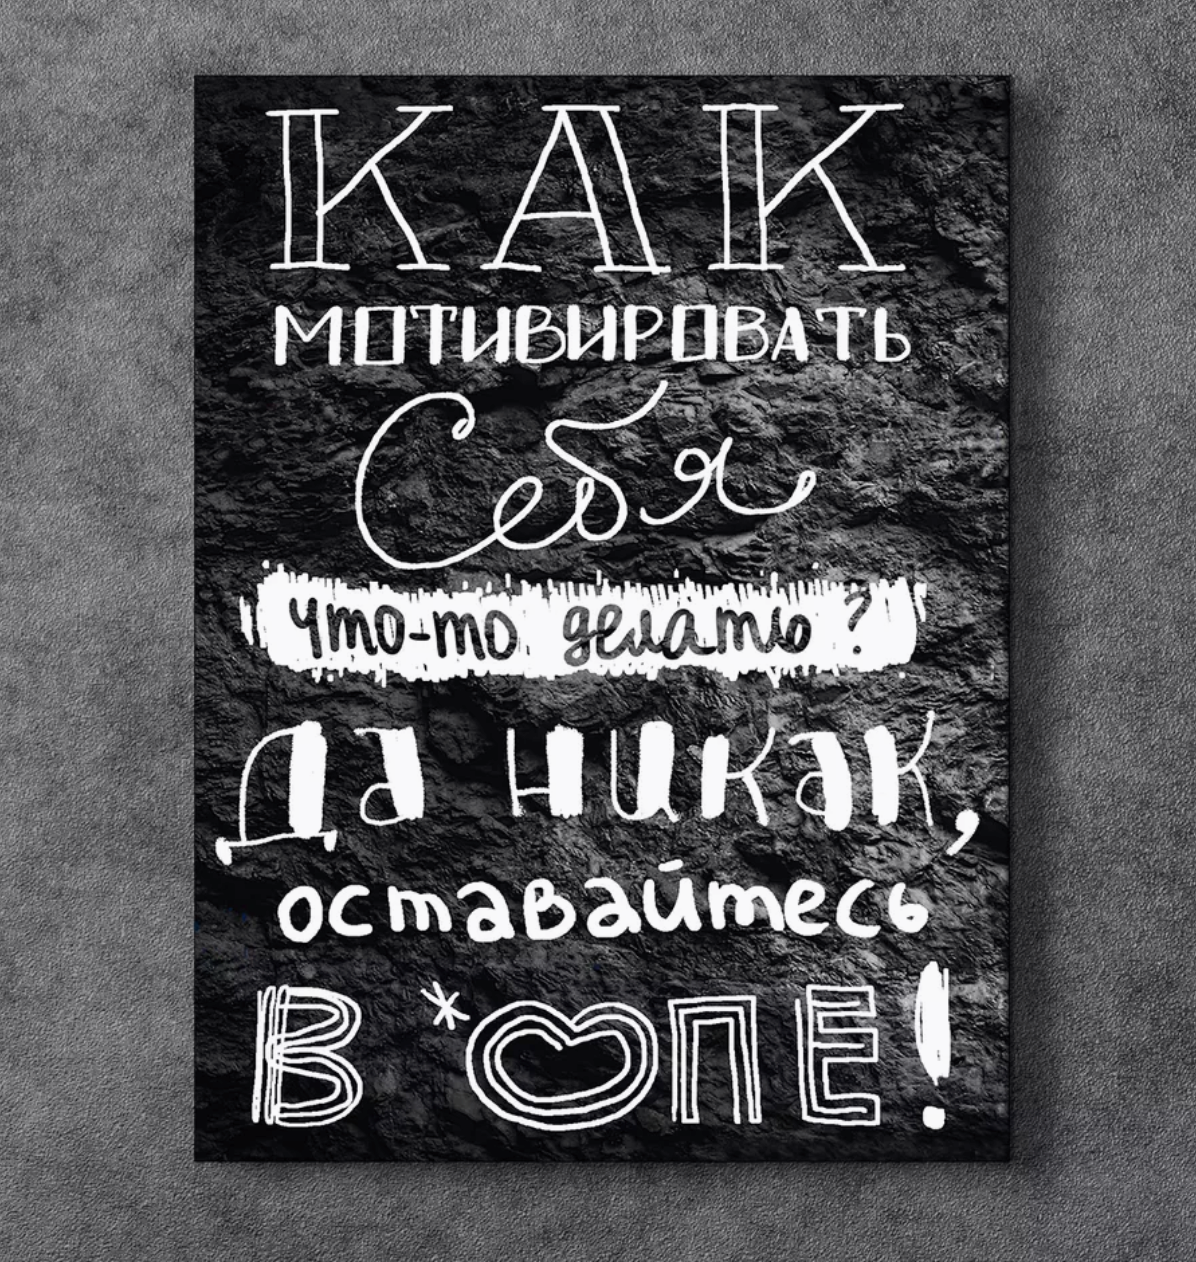 КАК
МОТИВИРОВАТЬ
Себя
что-то делать?
Да никак,
оставайтесь
В *ОПЕ!